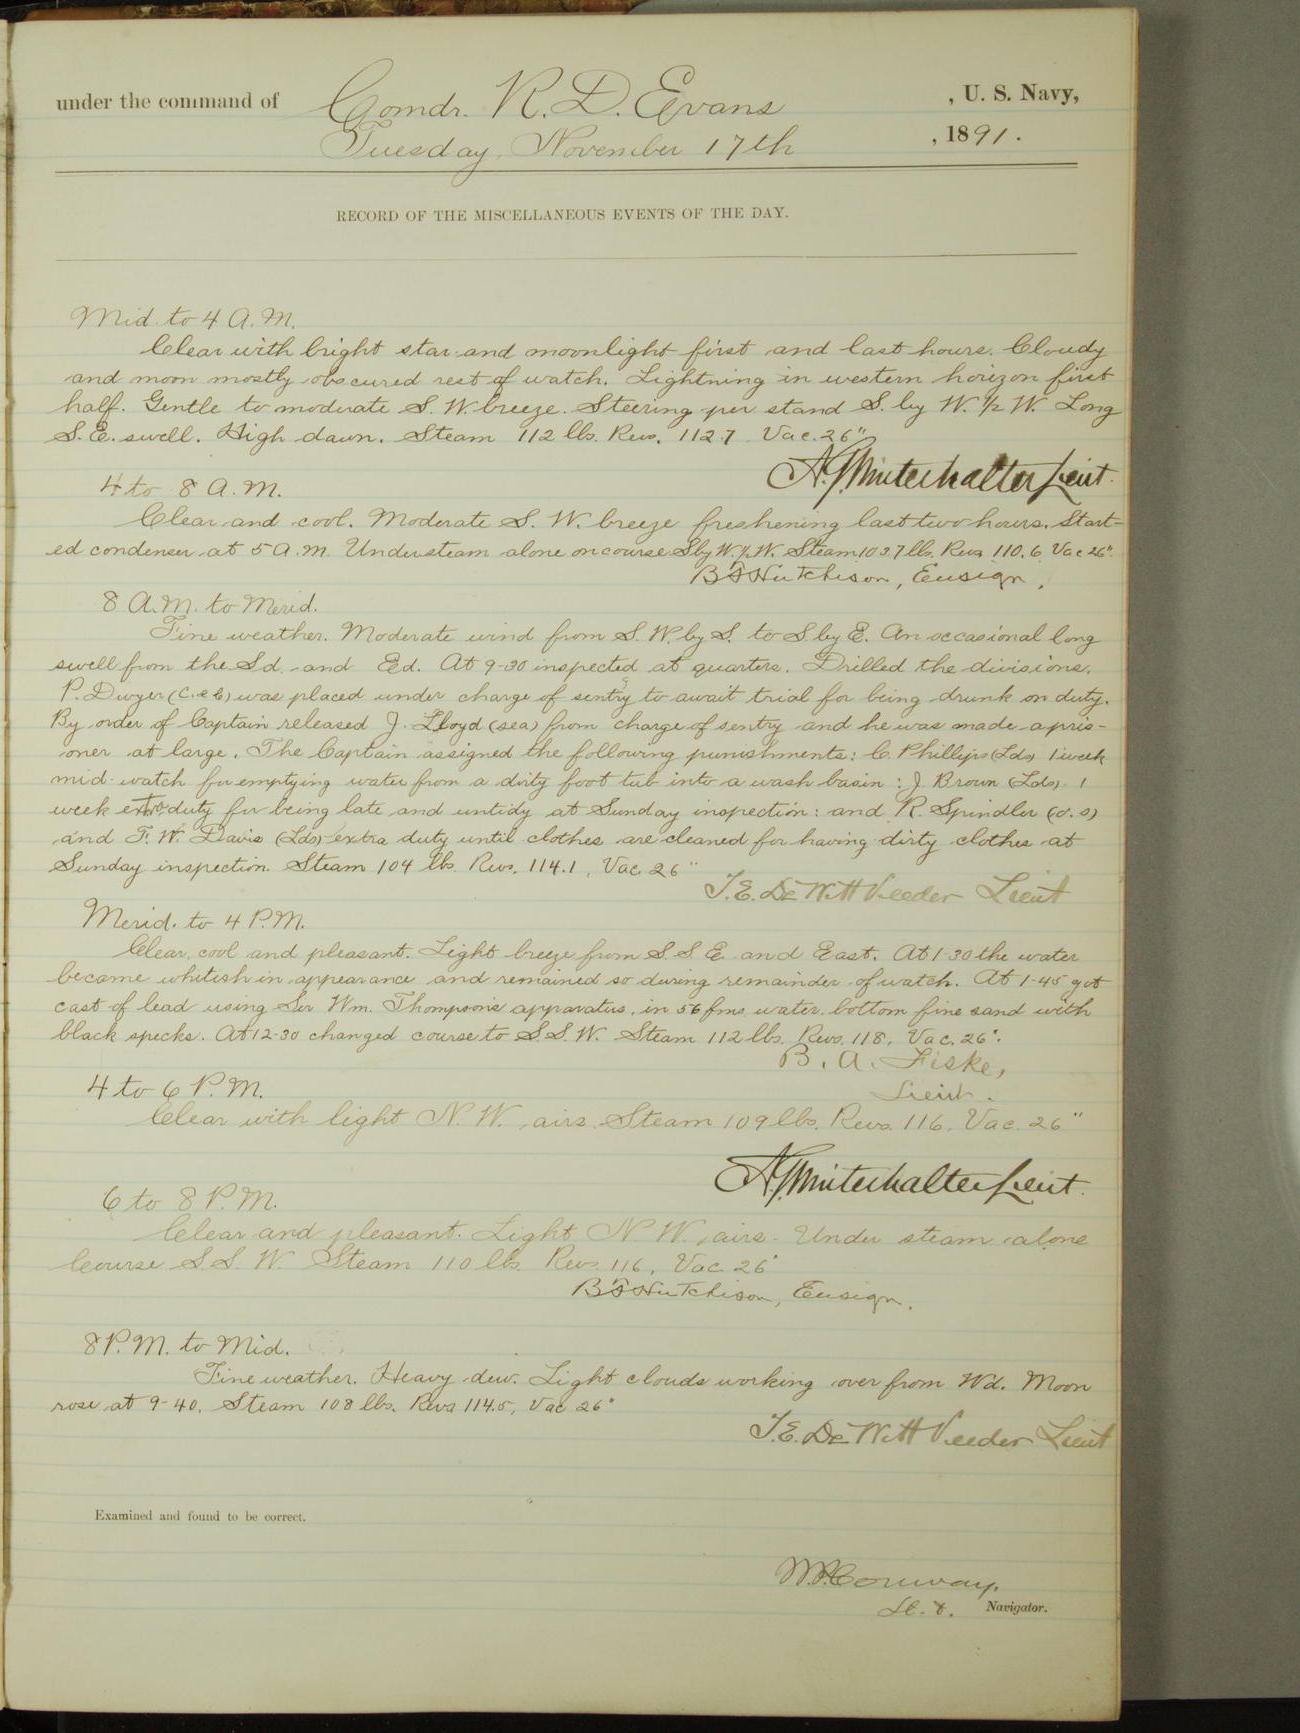 under the command of Comdr. R. D. Evans , U. S. Navy,
Tuesday, November 17th , 1891.
RECORD OF THE MISCELLANEOUS EVENTS OF THE DAY.
Mid. to 4 A.M.
Clear with bright star and moonlight first and last hours. Cloudy
and moon mostly obscured rest of watch. Lightning in western horizon first
half. Gentle to moderate S. W. breeze. Steering per stand S. by W. 1/2 W. Long
S. E. swell. High dawn. Steam 112 lbs. Revs. 112.7 Vac. 26"
A. G. Winterhalter Lieut.
4 to 8 A.M.
Clear and cool. Moderate S. W. breeze freshening last two hours. Start-
ed condenser at 5 A.M. Under steam alone on course S by W. 1/2 W. Steam 103.7 lbs. Revs 110.6 Vac 26".
B F Hutchison, Ensign.
8 A.M. to Merid.
Fine weather. Moderate wind from S. W. by S. to S by E. An occasional long
swell from the Sd. and Ed. At 9-30 inspected at quarters. Drilled the divisions.
P. Dwyer was placed under charge of sentry to await trial for being drunk on duty.
By order of Captain released J. Lloyd (sea) from charge of sentry and he was made a pris-
oner at large. The Captain assigned the following punishments: C. Phillips (Lds) 1 week
mid-watch for emptying water from a dirty foot tub into a wash basin: J Brown (Lds). 1
week extra duty for being late and untidy at Sunday inspection: and R. Spindler (o.s)
and F. W. Davis (Lds) extra duty until clothes are cleaned for having dirty clothes at
Sunday inspection. Steam 104 lbs. Revs. 114.1, Vac. 26"
T. E. DeWitt Veeder Lieut
Merid. to 4 P.M.
Clear, cool and pleasant. Light breeze from S. S. E. and East. At 1-30 the water
became whitish in appearance and remained so during remainder of watch. At 1-45 got
cast of lead using Sir Wm. Thompson's apparatus, in 56 fms water. bottom fine sand with
black specks. At 12-30 changed course to S. S. W. Steam 112 lbs. Revs. 118, Vac. 26".
B. A. Fiske,
Lieut.
4 to 6 P.M.
Clear with light N. W. airs. Steam 109 lbs. Revs. 116, Vac. 26"
A. G. Winterhalter Lieut.
6 to 8 P.M.
Clear and pleasant. Light N. W. airs. Under steam alone
Course S. S. W. Steam 110 lbs. Revs. 116, Vac. 26"
B F Hutchison, Ensign.
8 P.M. to Mid.
Fine weather. Heavy dew. Light clouds working over from Wd. Moon
rose at 9-40. Steam 108 lbs. Revs 114.5, Vac 26"
T. E. DeWitt Veeder Lieut
Examined and found to be correct.
W. P. Conway,
Lt. & Navigator.